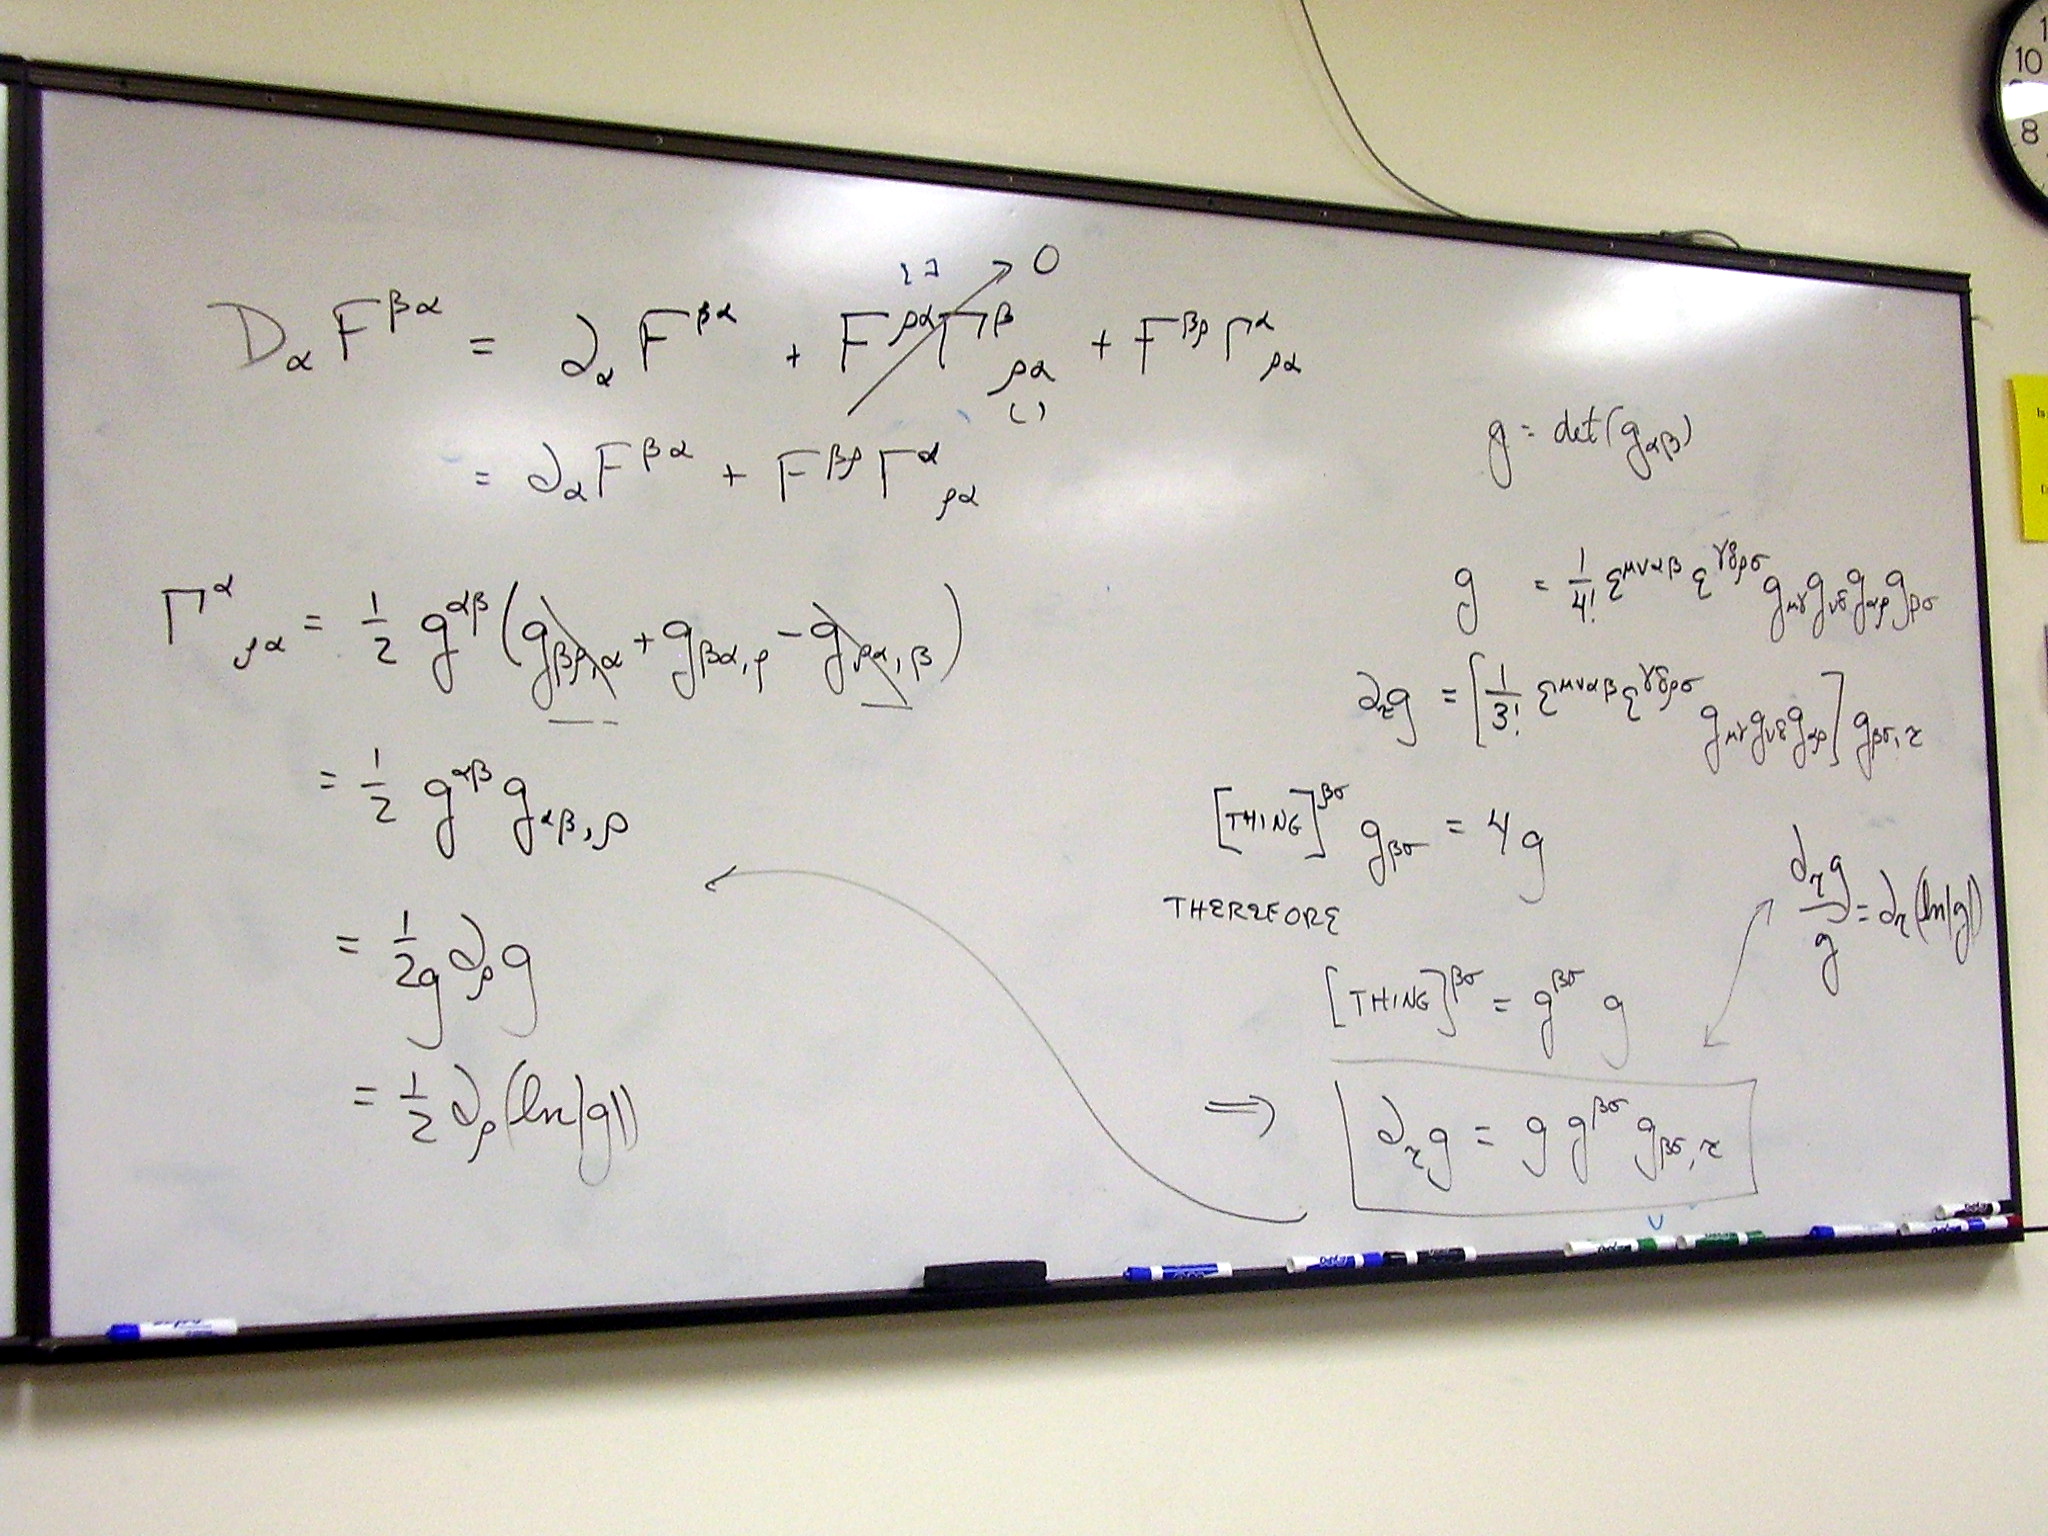 [ ] → 0
D_α F^{βα} = ∂_α F^{βα} + F^{ρα} Γ^β_{ρα} + F^{βρ} Γ^α_{ρα}
( )
= ∂_α F^{βα} + F^{βρ} Γ^α_{ρα}
Γ^α_{ρα} = 1/2 g^{αβ} (g_{βρ,α} + g_{βα,ρ} - g_{ρα,β})
= 1/2 g^{αβ} g_{αβ,ρ}
= 1/2g ∂_ρ g
= 1/2 ∂_ρ (ln|g|)
g = det(g_{αβ})
g = 1/4! ε^{μναβ} ε^{γδρσ} g_{μγ} g_{νδ} g_{αρ} g_{βσ}
∂_τ g = [1/3! ε^{μναβ} ε^{γδρσ} g_{μγ} g_{νδ} g_{αρ}] g_{βσ,τ}
[THING]^{βσ} g_{βσ} = 4g
THEREFORE
∂_τ g / g = ∂_τ (ln|g|)
[THING]^{βσ} = g^{βσ} g
⟹ ∂_τ g = g g^{βσ} g_{βσ,τ}
10
8